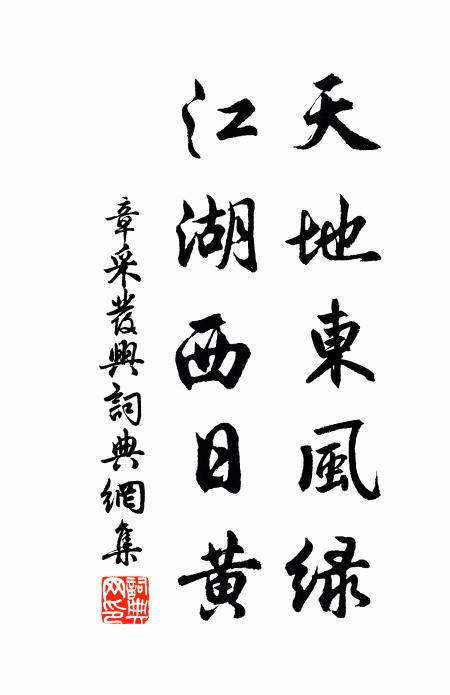 天地東風緑
江湖西日黄
章采發興詞典網集
詞典網印